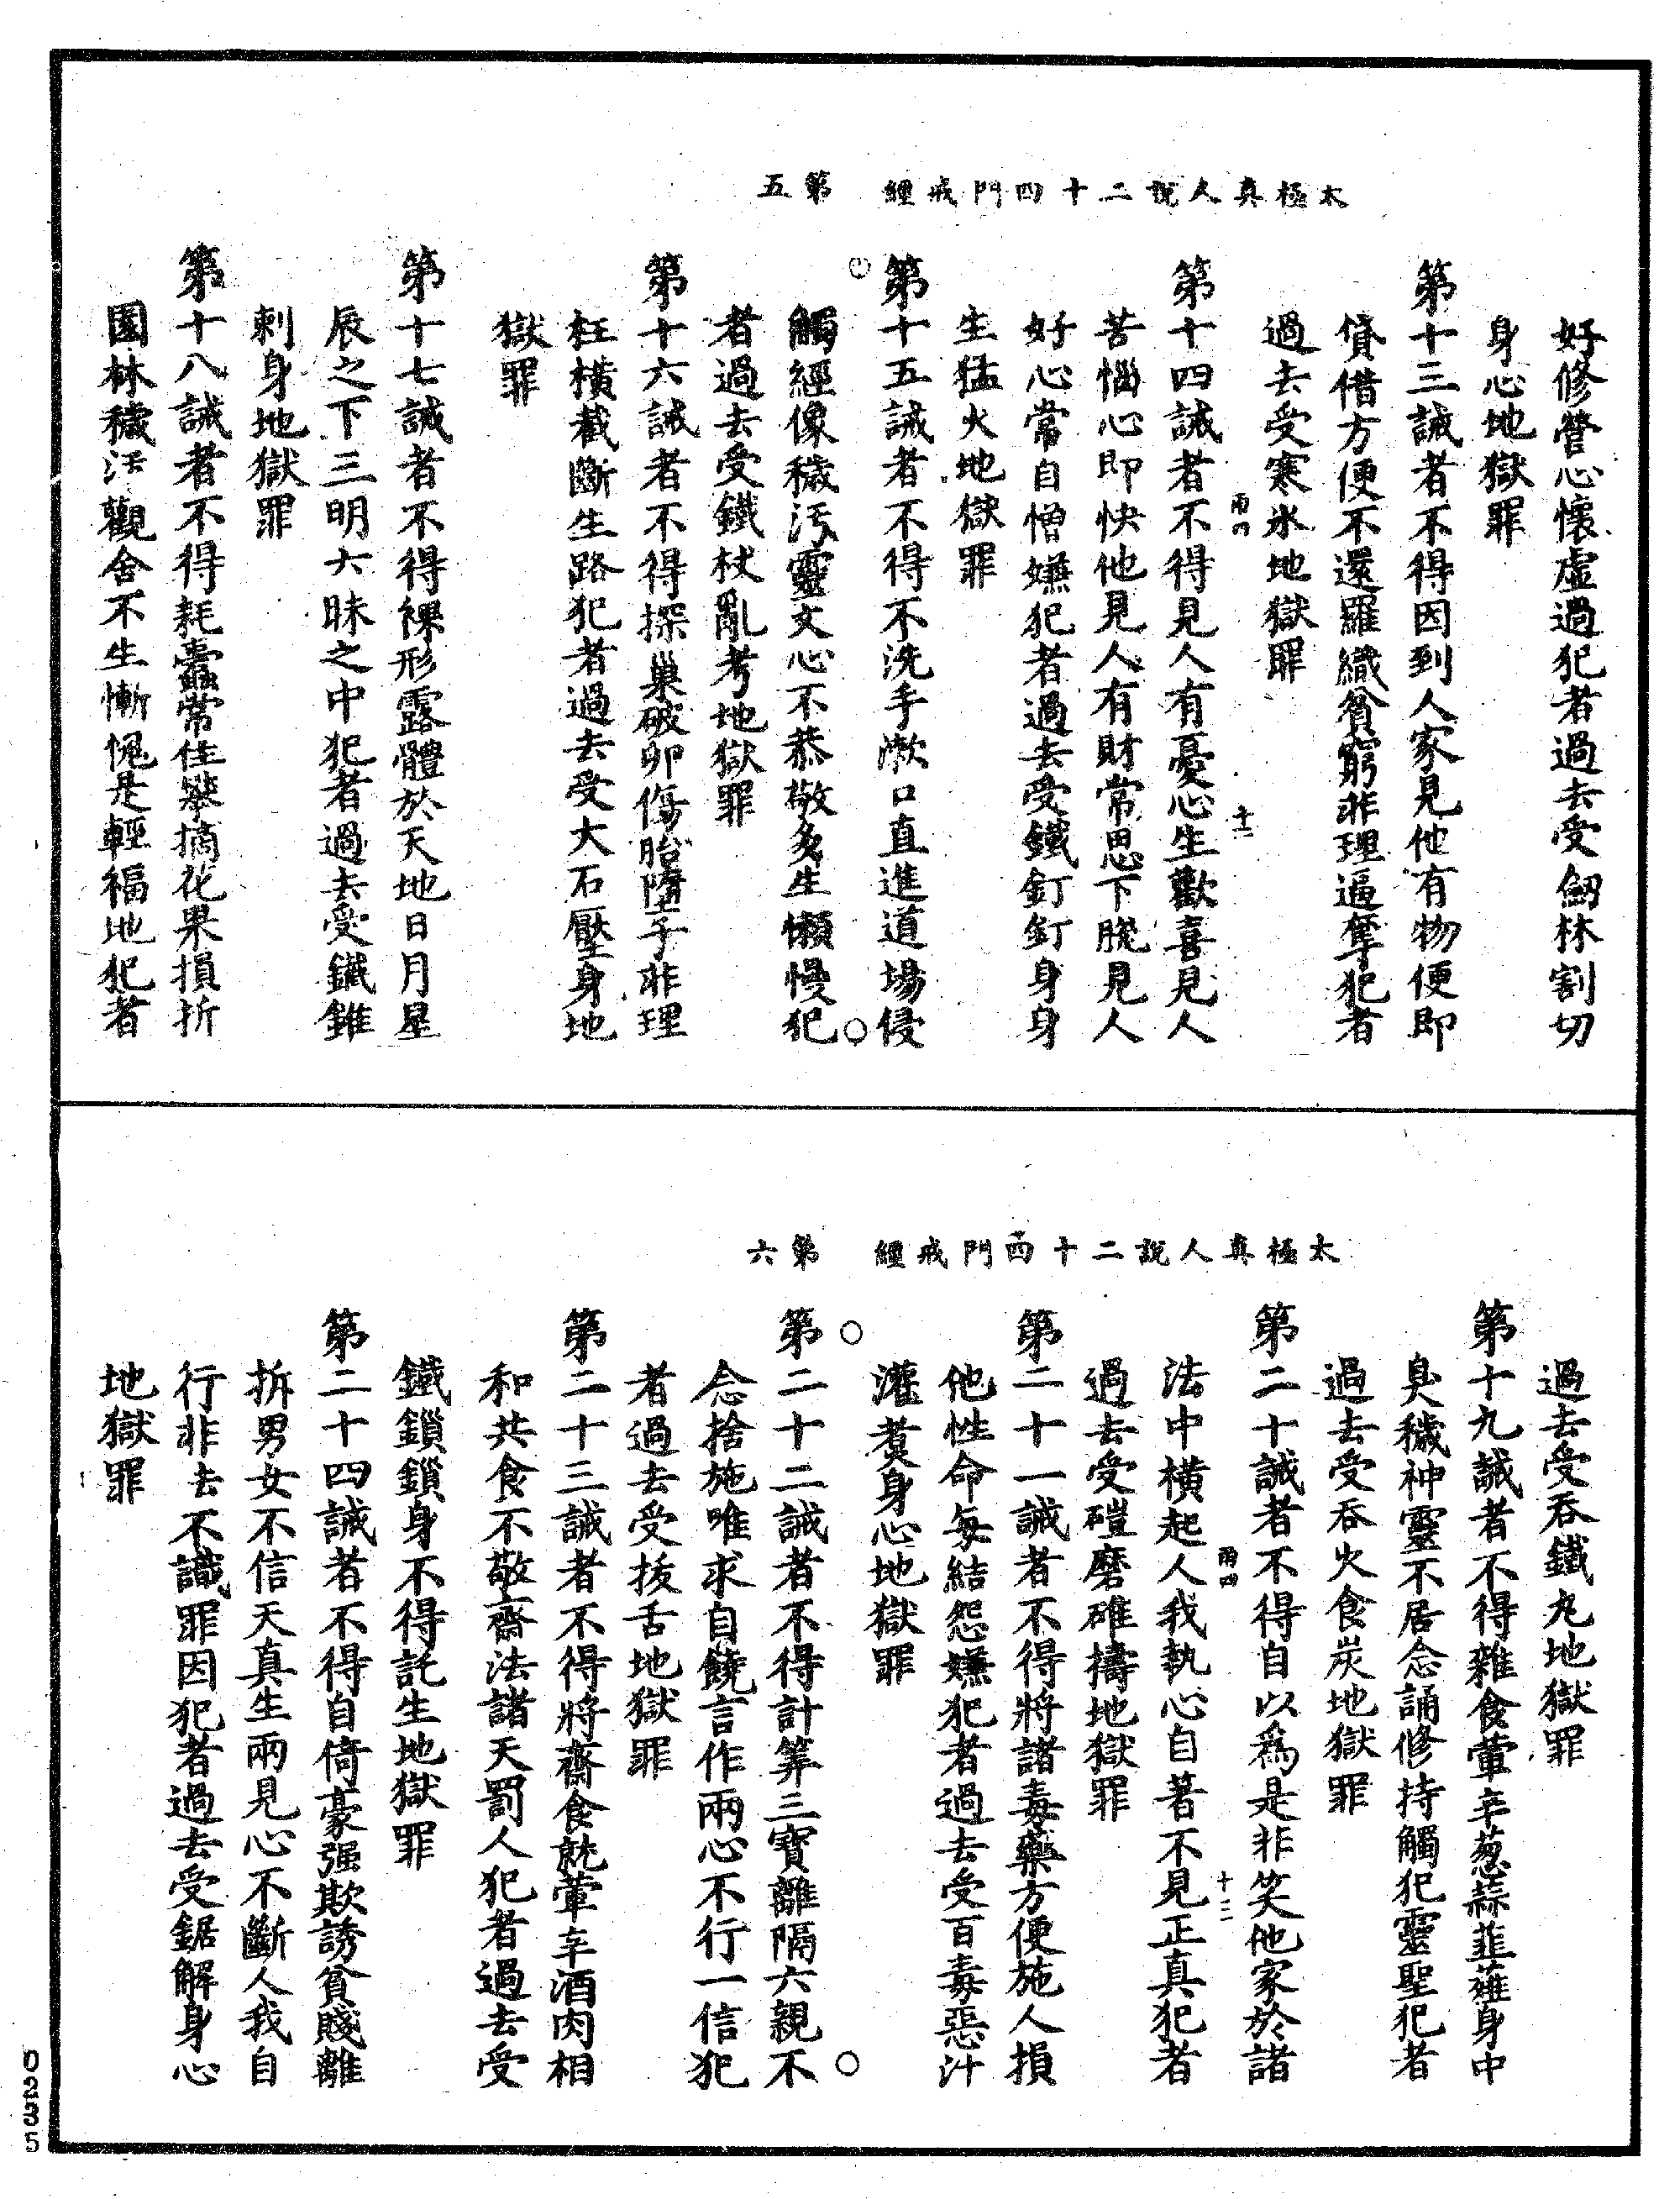 太極真人說二十四門戒經　第五
好修營心懷虛過犯者過去受劒林割切
身心地獄罪
第十三誡者不得因到人家見他有物便即
貸借方便不還羅織貧窮非理逼奪犯者
過去受寒氷地獄罪
雨四　十二
第十四誡者不得見人有憂心生歡喜見人
苦惱心即快他見人有財常思下脫見人
好心常自憎嫌犯者過去受鐵釘釘身身
生猛火地獄罪
第十五誡者不得不洗手漱口直進道場侵
觸經像穢汚靈文心不恭敬多生懶慢犯
者過去受鐵杖亂考地獄罪
第十六誡者不得探巢破卵傷胎墮子非理
枉橫截斷生路犯者過去受大石壓身地
獄罪
第十七誡者不得裸形露體於天地日月星
辰之下三明六昧之中犯者過去受鐵錐
刺身地獄罪
第十八誡者不得耗蠹常住攀摘花果損折
園林穢汚觀舍不生慚愧是輕福地犯者
太極真人說二十四門戒經　第六
過去受吞鐵丸地獄罪
第十九誡者不得雜食葷辛葱蒜韮薤身中
臭穢神靈不居念誦修持觸犯靈聖犯者
過去受吞火食炭地獄罪
第二十誡者不得自以爲是非笑他家於諸
雨四　十二
法中橫起人我執心自著不見正真犯者
過去受磑磨碓擣地獄罪
第二十一誡者不得將諸毒藥方便施人損
他性命每結怨嫌犯者過去受百毒惡汁
灌煑身心地獄罪
第二十二誡者不得計筭三寶離隔六親不
念捨施唯求自饒言作兩心不行一信犯
者過去受拔舌地獄罪
第二十三誡者不得將齋食就葷辛酒肉相
和共食不敬齋法諸天罰人犯者過去受
鐵鎖鎖身不得託生地獄罪
第二十四誡者不得自倚豪强欺誘貧賤離
拆男女不信天真生兩見心不斷人我自
行非去不識罪因犯者過去受鋸解身心
地獄罪
0235